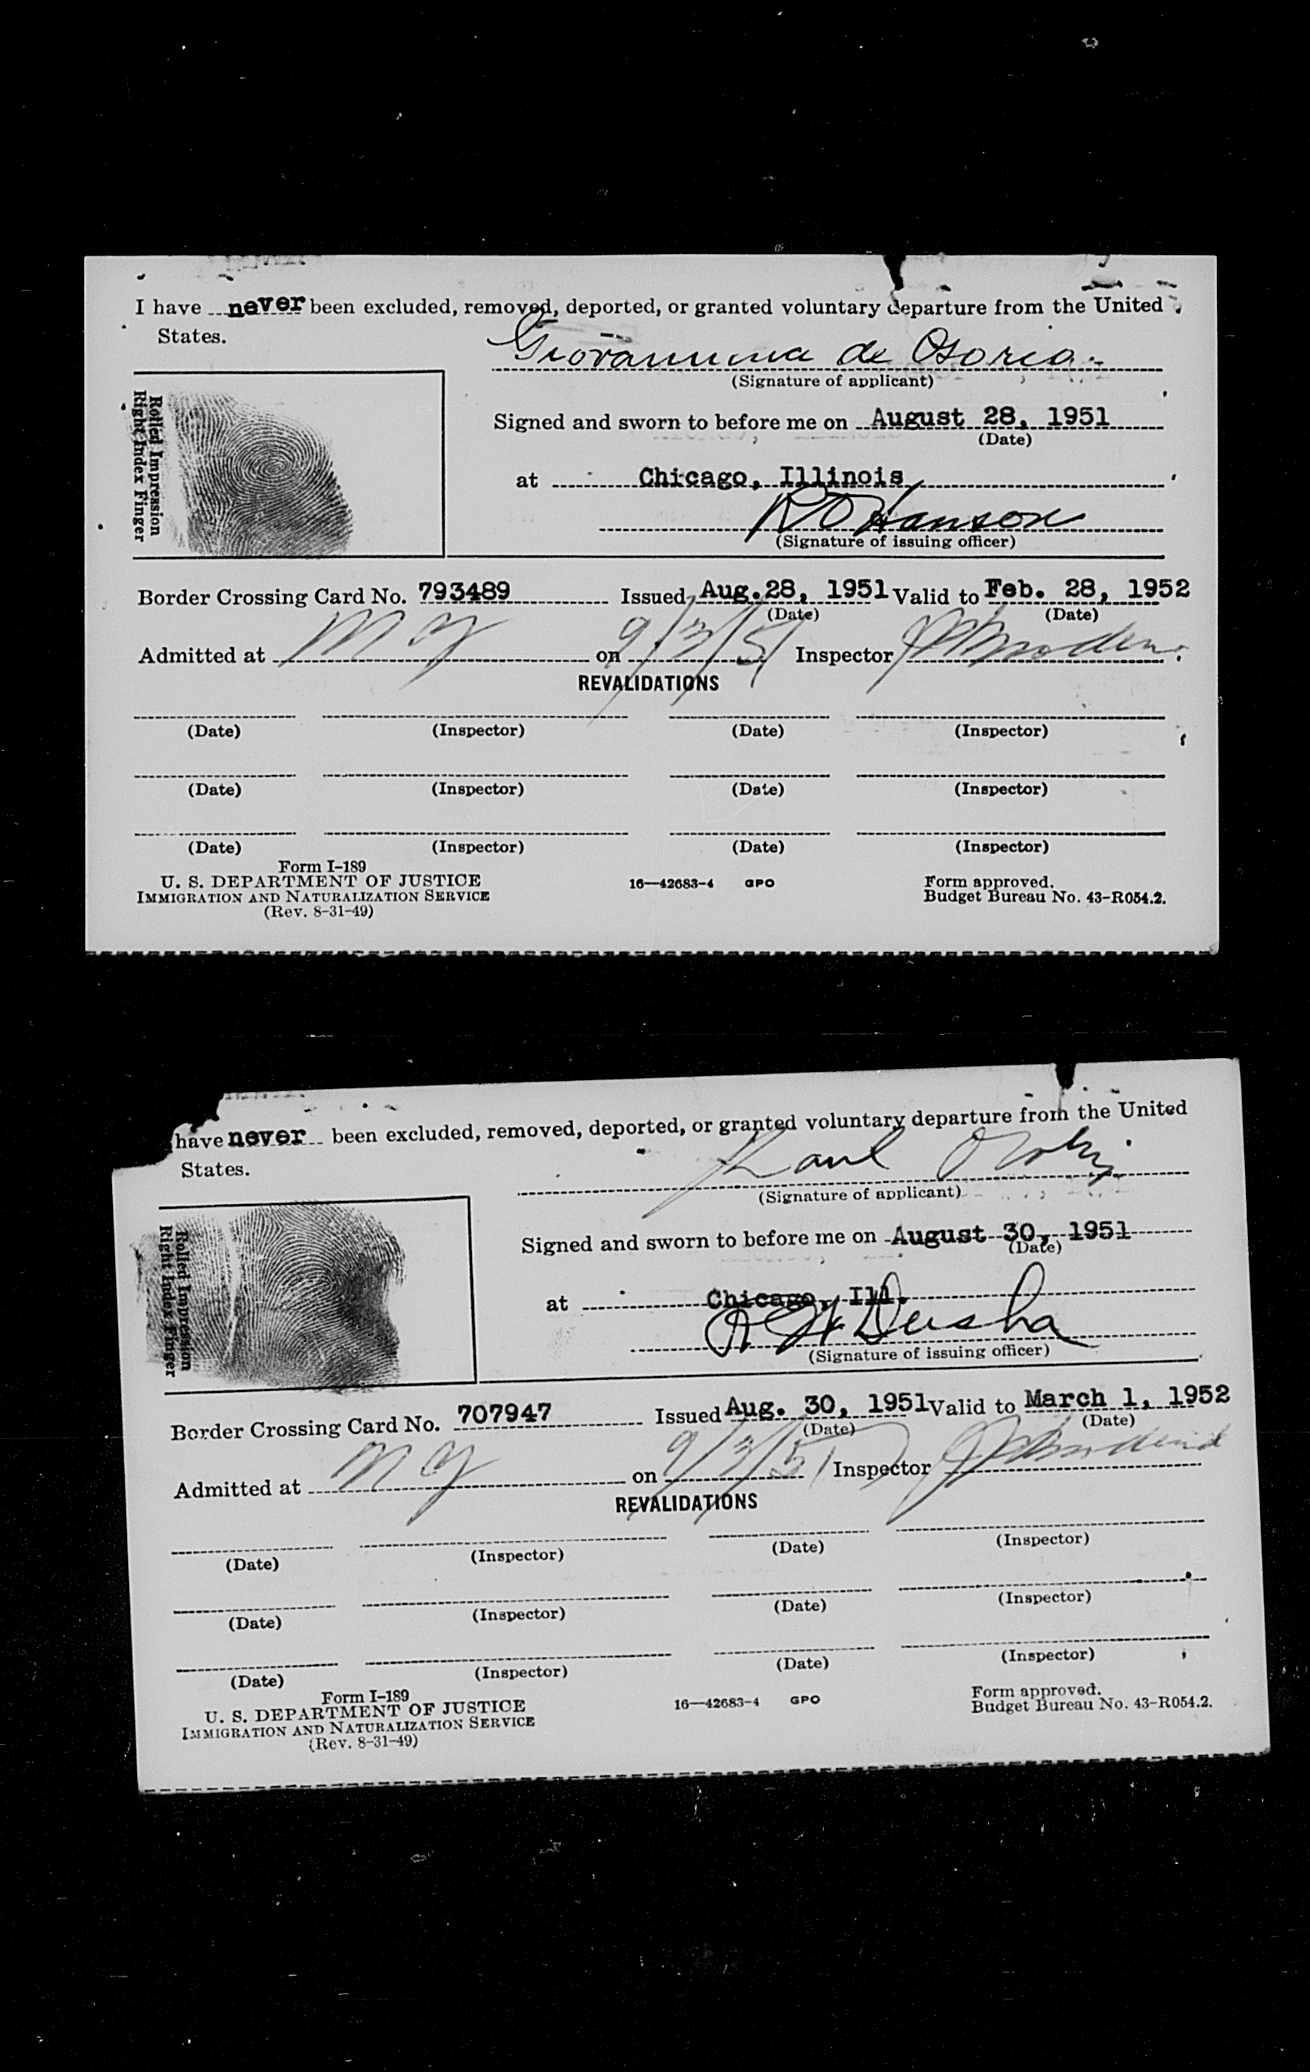 I have never been excluded, removed, deported, or granted voluntary departure from the United
States.
Giovannina de Osorio.
(Signature of applicant)
Rolled Impression
Right Index Finger
Signed and sworn to before me on August 28, 1951
(Date)
at Chicago, Illinois
R O Hanson
(Signature of issuing officer)
Border Crossing Card No. 793489 Issued Aug. 28, 1951 Valid to Feb. 28, 1952
(Date) (Date)
Admitted at N Y on 9/3/51 Inspector
REVALIDATIONS
(Date) (Inspector) (Date) (Inspector)
(Date) (Inspector) (Date) (Inspector)
(Date) (Inspector) (Date) (Inspector)
Form I-189
U. S. DEPARTMENT OF JUSTICE
IMMIGRATION AND NATURALIZATION SERVICE
(Rev. 8-31-49)
16—42683-4 GPO
Form approved.
Budget Bureau No. 43-R054.2.
have never been excluded, removed, deported, or granted voluntary departure from the United
States.
(Signature of applicant)
Rolled Impression
Right Index Finger
Signed and sworn to before me on August 30, 1951
(Date)
at Chicago, Ill.
(Signature of issuing officer)
Border Crossing Card No. 707947 Issued Aug. 30, 1951 Valid to March 1, 1952
(Date) (Date)
Admitted at N Y on 9/3/51 Inspector
REVALIDATIONS
(Date) (Inspector) (Date) (Inspector)
(Date) (Inspector) (Date) (Inspector)
(Date) (Inspector) (Date) (Inspector)
Form I-189
U. S. DEPARTMENT OF JUSTICE
IMMIGRATION AND NATURALIZATION SERVICE
(Rev. 8-31-49)
16—42683-4 GPO
Form approved.
Budget Bureau No. 43-R054.2.